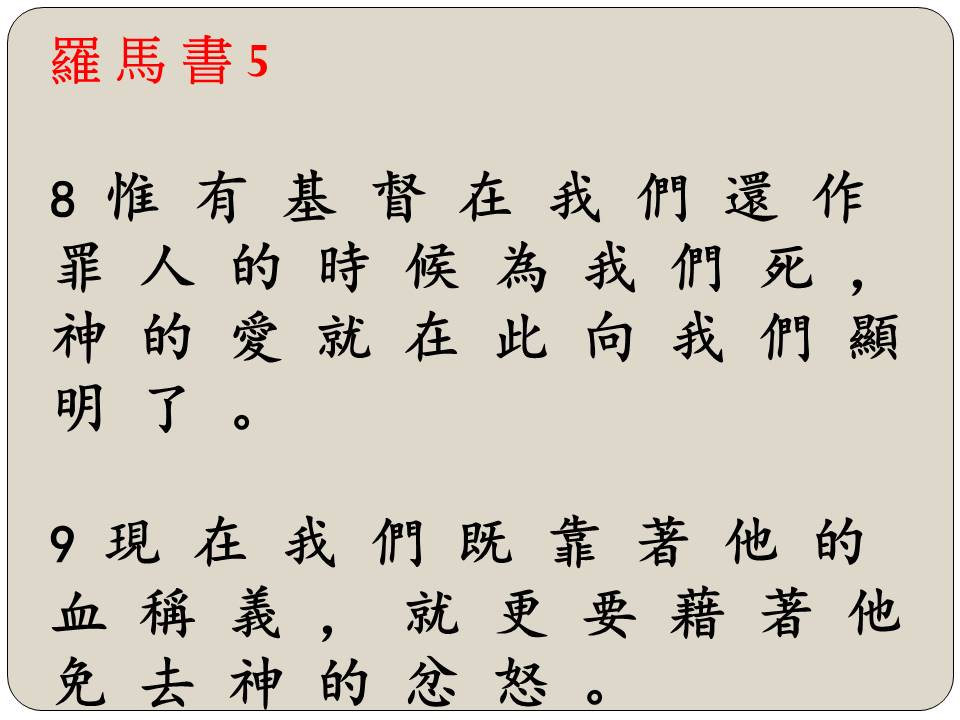 羅馬書5
8 惟有基督在我們還作
罪人的時候為我們死，
神的愛就在此向我們顯
明了。
9 現在我們既靠著他的
血稱義，就更要藉著他
免去神的忿怒。